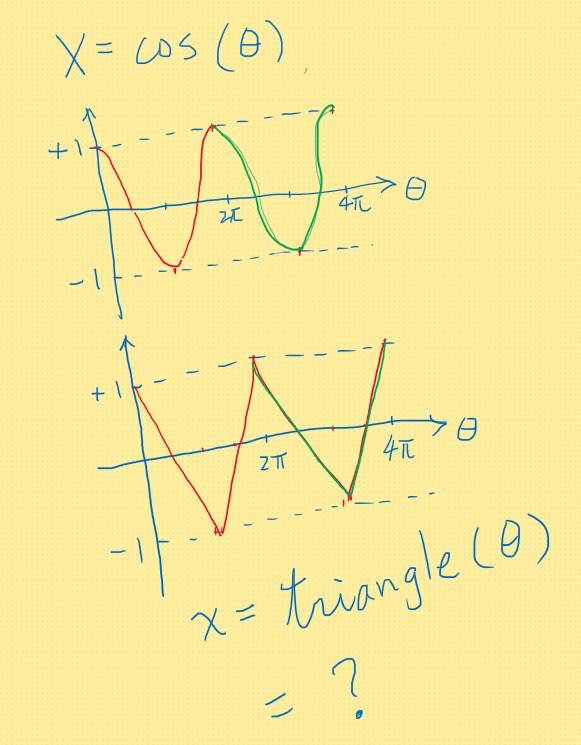 X = cos(θ)
+1
2π
4π
θ
-1
+1
2π
4π
θ
-1
x = triangle(θ)
= ?